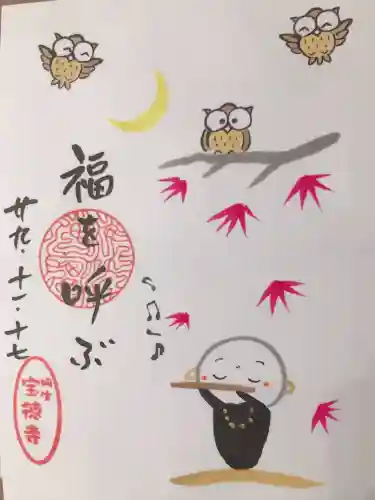 福を呼ぶ
廿九・十一・十七
宝徳寺